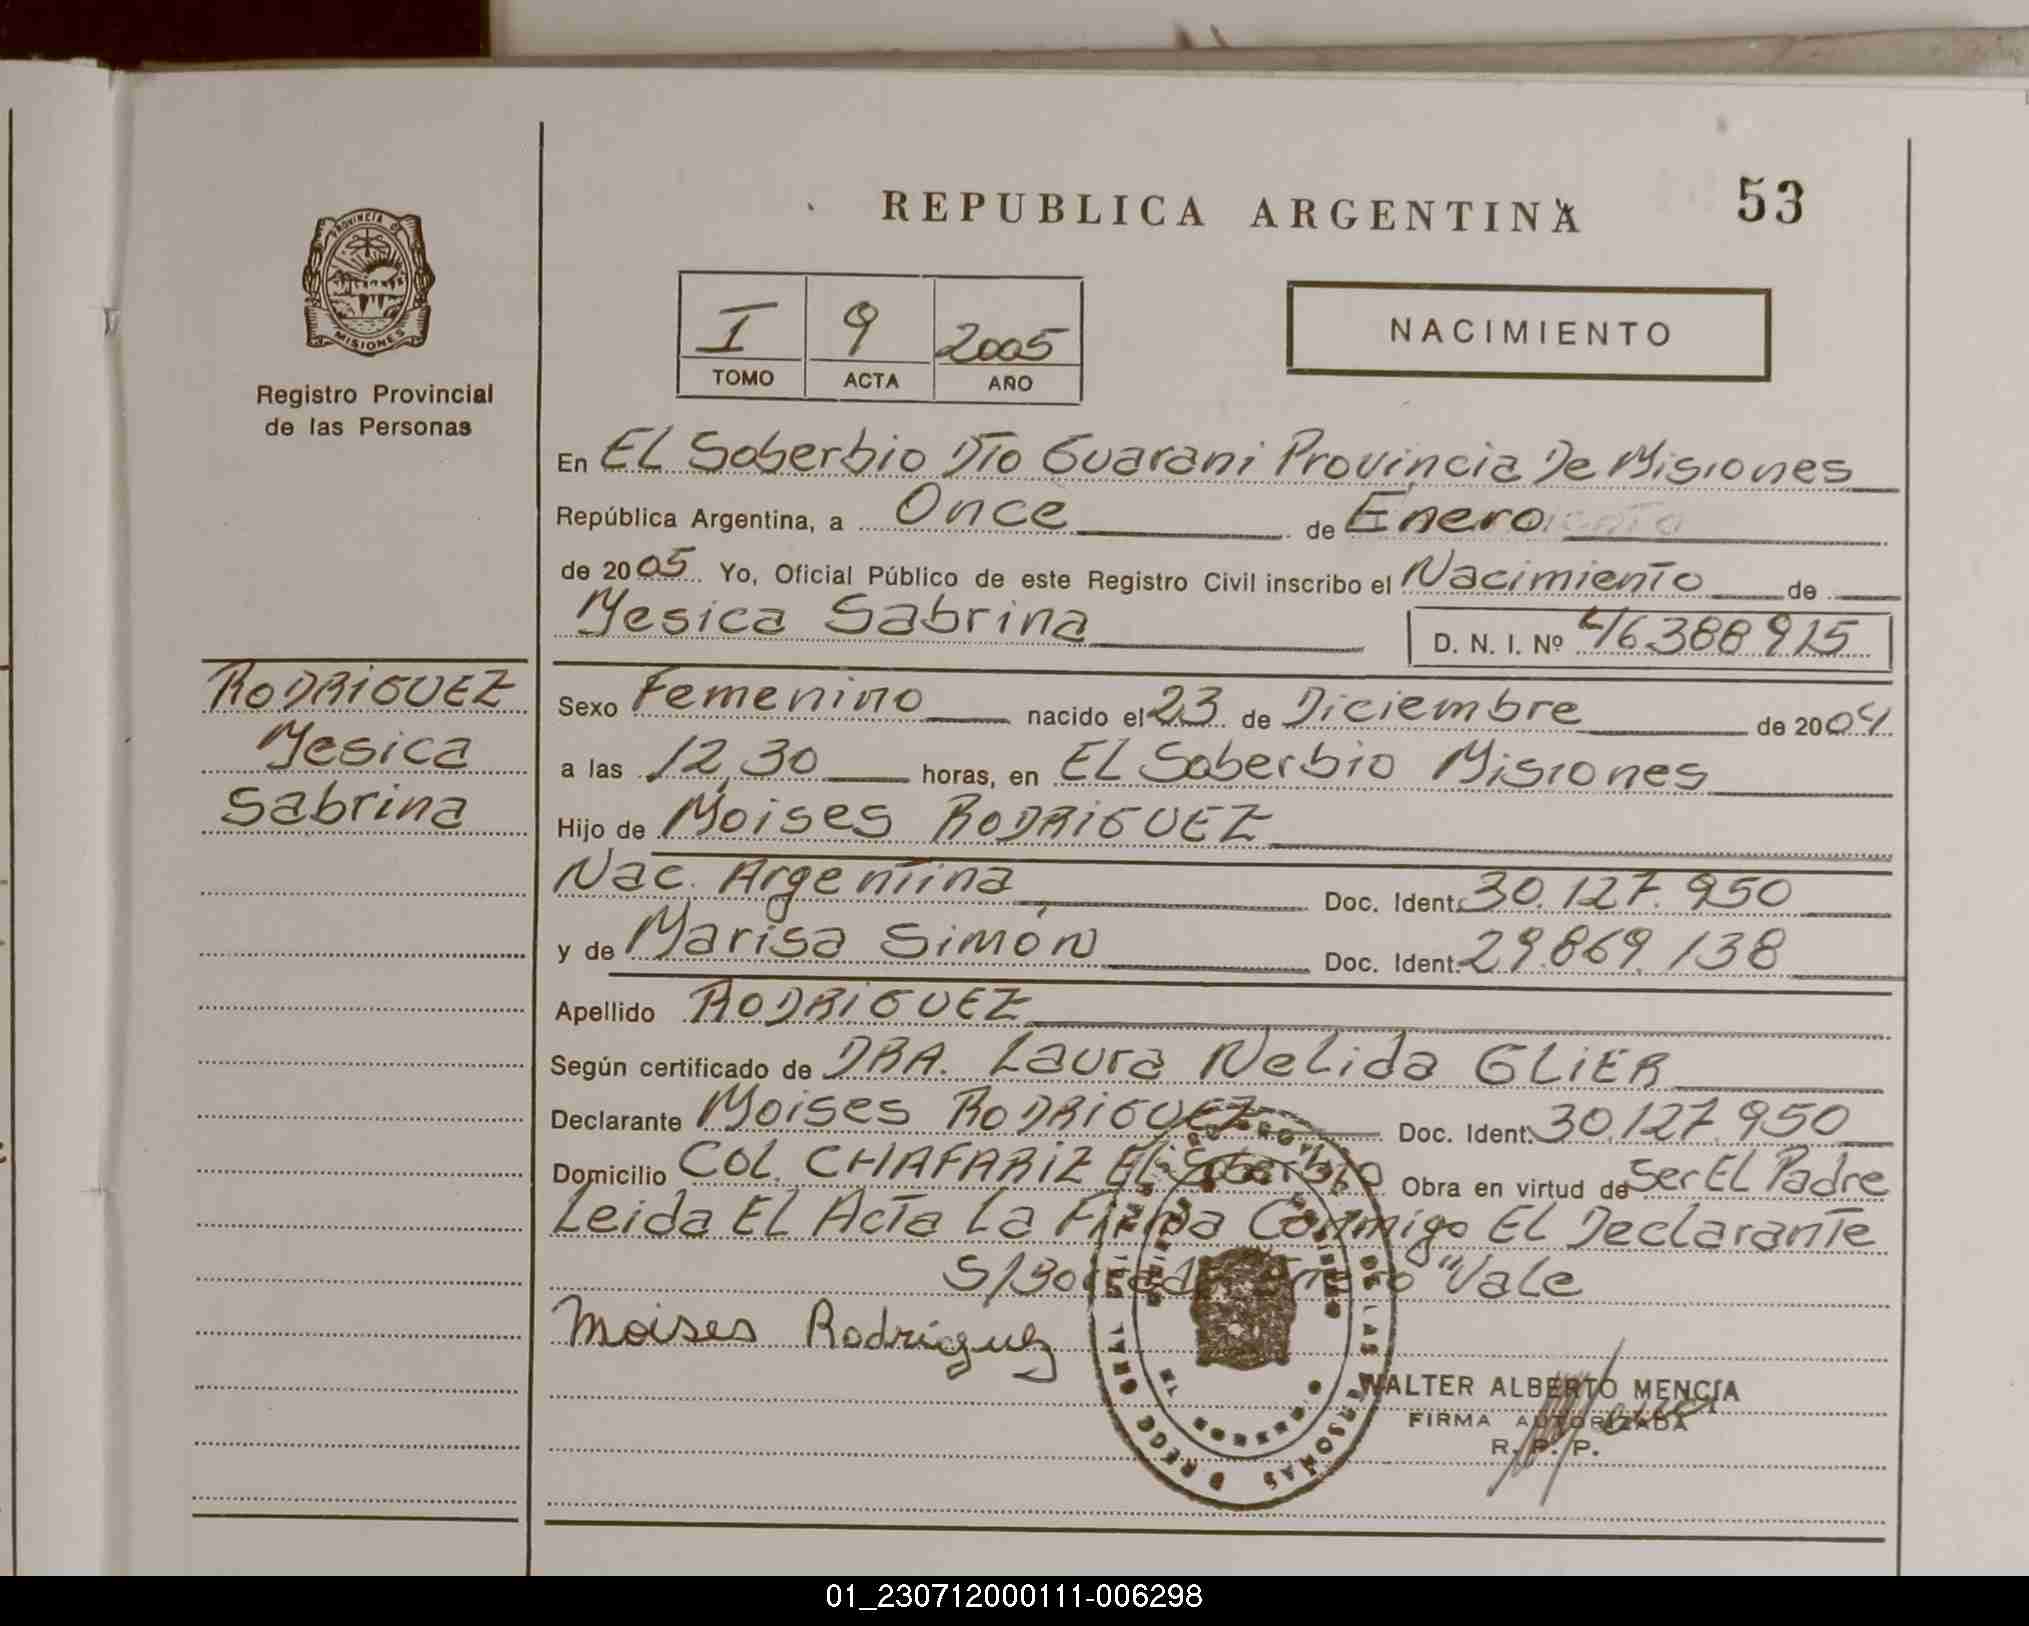 REPUBLICA ARGENTINA
53
PROVINCIA DE
MISIONES
Registro Provincial
de las Personas
I 9 2005
TOMO ACTA AÑO
NACIMIENTO
En EL Soberbio DTo Guarani Provincia De Misiones
República Argentina, a Once de Enero
de 2005 Yo, Oficial Público de este Registro Civil inscribo el Nacimiento de
Yesica Sabrina D. N. I. Nº 46388915
RODRIGUEZ
Yesica
Sabrina
Sexo Femenino nacido el 23 de Diciembre de 2004
a las 12,30 horas, en EL Soberbio Misiones
Hijo de Moises RODRIGUEZ
Nac. Argentina Doc. Ident. 30.127.950
y de Marisa Simón Doc. Ident. 29.869.138
Apellido RODRIGUEZ
Según certificado de DRA. Laura Nelida GLIER
Declarante Moises RODRIGUEZ Doc. Ident. 30.127.950
Domicilio COL. CHAFARIZ EL Soberbio Obra en virtud de Ser EL Padre
Leida EL Acta La Firma Conmigo EL Declarante
S/Borrado Enero "Vale
Moises Rodriguez
WALTER ALBERTO MENCIA
FIRMA AUTORIZADA
R. P. P.
01_230712000111-006298